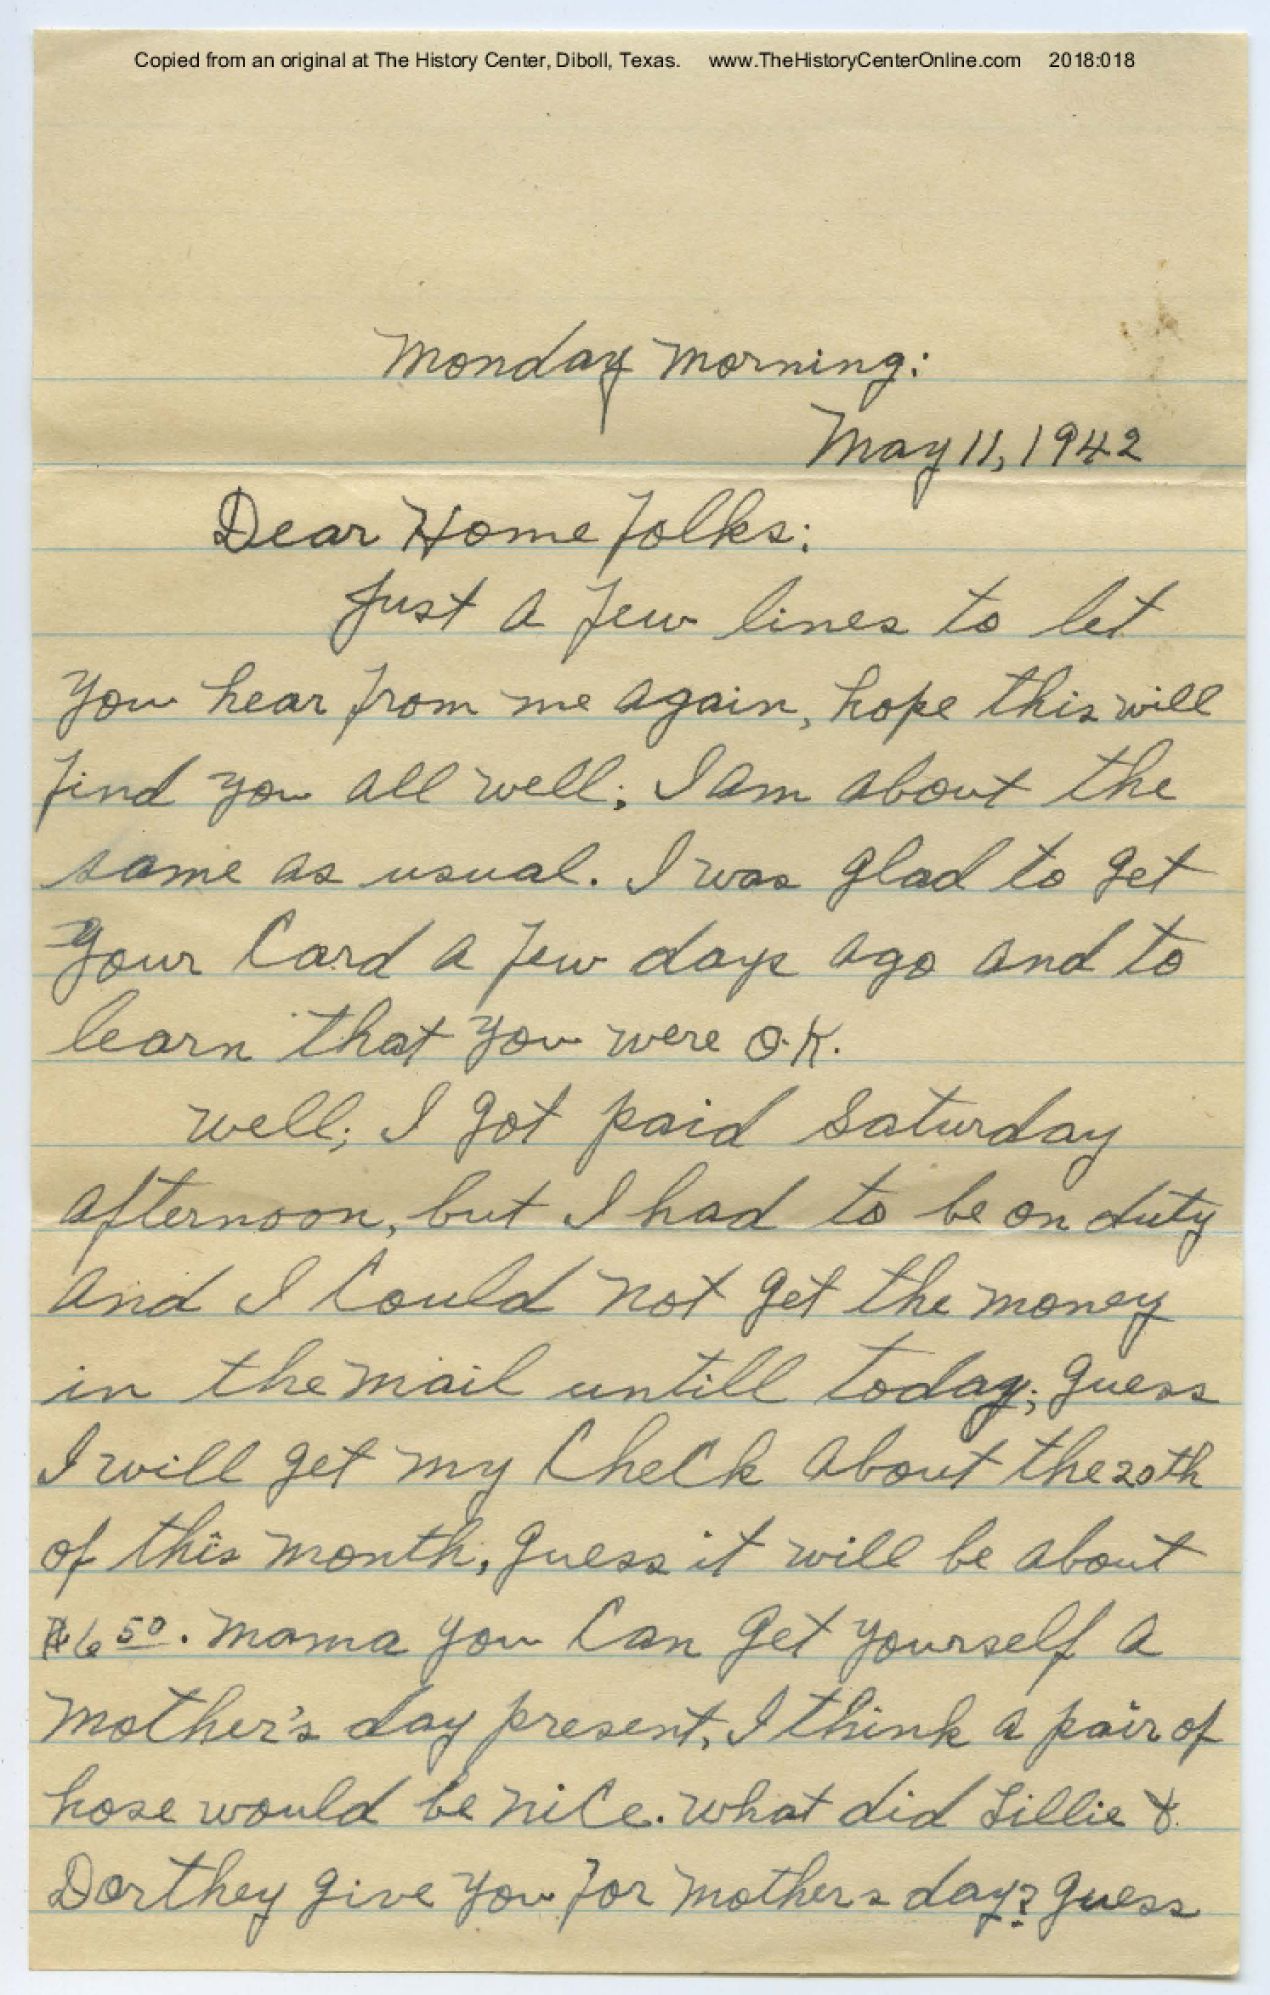 Copied from an original at The History Center, Diboll, Texas. www.TheHistoryCenterOnline.com 2018:018
Monday Morning:
May 11, 1942
Dear Home Folks:
Just a few lines to let
you hear from me again, hope this will
find you all well; I am about the
same as usual. I was glad to get
your Card a few days ago and to
learn that you were O.K.
Well; I got paid Saturday
afternoon, but I had to be on duty
and I Could not get the money
in the mail untill today; guess
I will get my Check about the 20th
of this month, guess it will be about
$6 50. Mama you Can get yourself a
Mother's day present, I think a pair of
hose would be nice. What did Lillie &
Dorthey give you for mothers day? guess